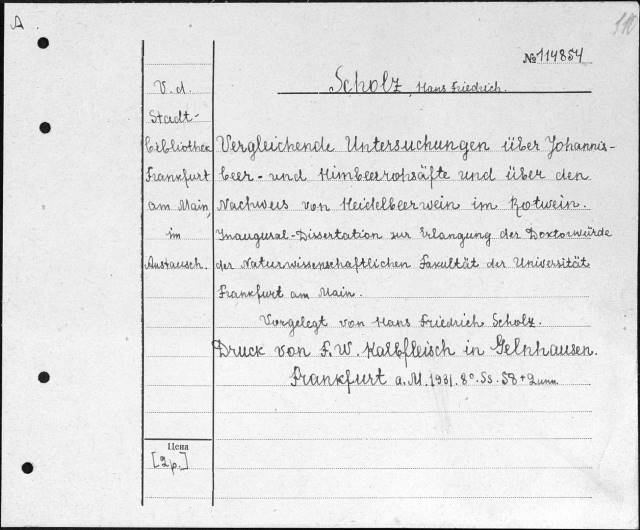 A
110
№ 114854
Scholz, Hans Friedrich.
V. d.
Stadt-
bibliothek
Frankfurt
am Main,
im
Austausch.
Vergleichende Untersuchungen über Johannis-
beer- und Himbeerrohsäfte und über den
Nachweis von Heidelbeerwein im Rotwein.
Inaugural-Dissertation zur Erlangung der Doktorwürde
der Naturwissenschaftlichen Fakultät der Universität
Frankfurt am Main.
Vorgelegt von Hans Friedrich Scholz.
Druck von F. W. Kalbfleisch in Gelnhausen.
Frankfurt a. M. 1931. 8°. SS. 58 + 2 unn.
Цена
[2 р.]